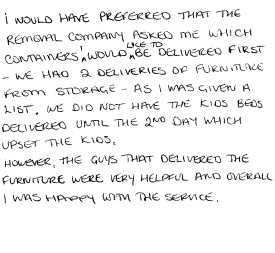 I WOULD HAVE PREFERRED THAT THE
REMOVAL COMPANY ASKED ME WHICH
CONTAINERS I WOULD LIKE TO BE DELIVERED FIRST
- WE HAD 2 DELIVERIES OF FURNITURE
FROM STORAGE - AS I WAS GIVEN A
LIST. WE DID NOT HAVE THE KIDS BEDS
DELIVERED UNTIL THE 2ND DAY WHICH
UPSET THE KIDS.
HOWEVER, THE GUYS THAT DELIVERED THE
FURNITURE WERE VERY HELPFUL AND OVERALL
I WAS HAPPY WITH THE SERVICE.